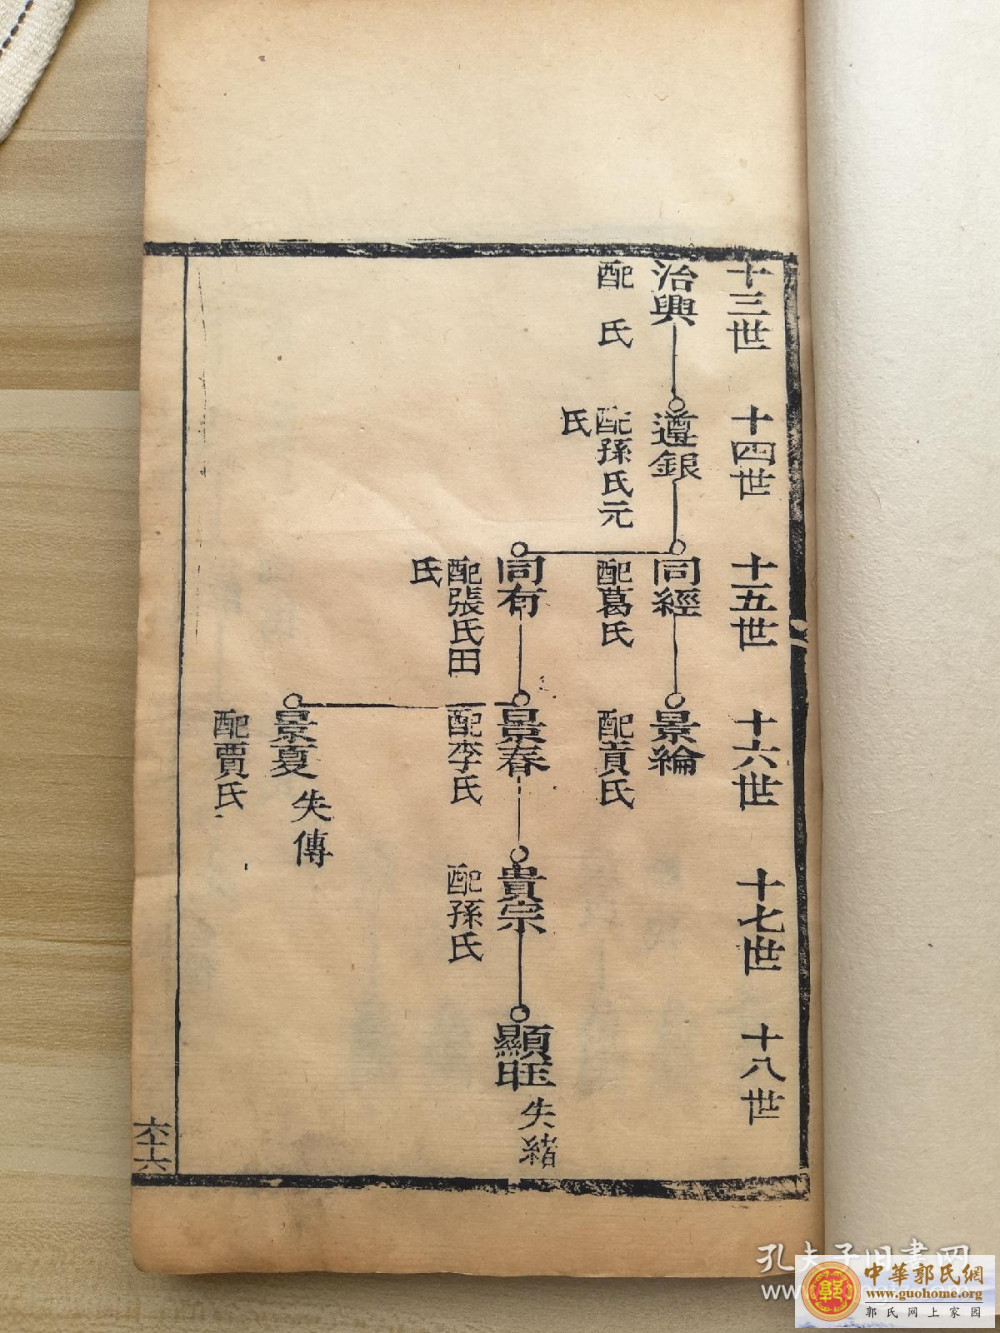 十三世
十四世
十五世
十六世
十七世
十八世
治興
配 氏
遵銀
配孫氏元
氏
同經
配葛氏
同有
配張氏田
氏
景綸
配貢氏
景春
配李氏
景夏
失傳
配賈氏
貴宗
配孫氏
顯旺
失緒
六十六
孔夫子旧书网
中華郭氏網
www.guohome.org
郭氏网上家园
郭